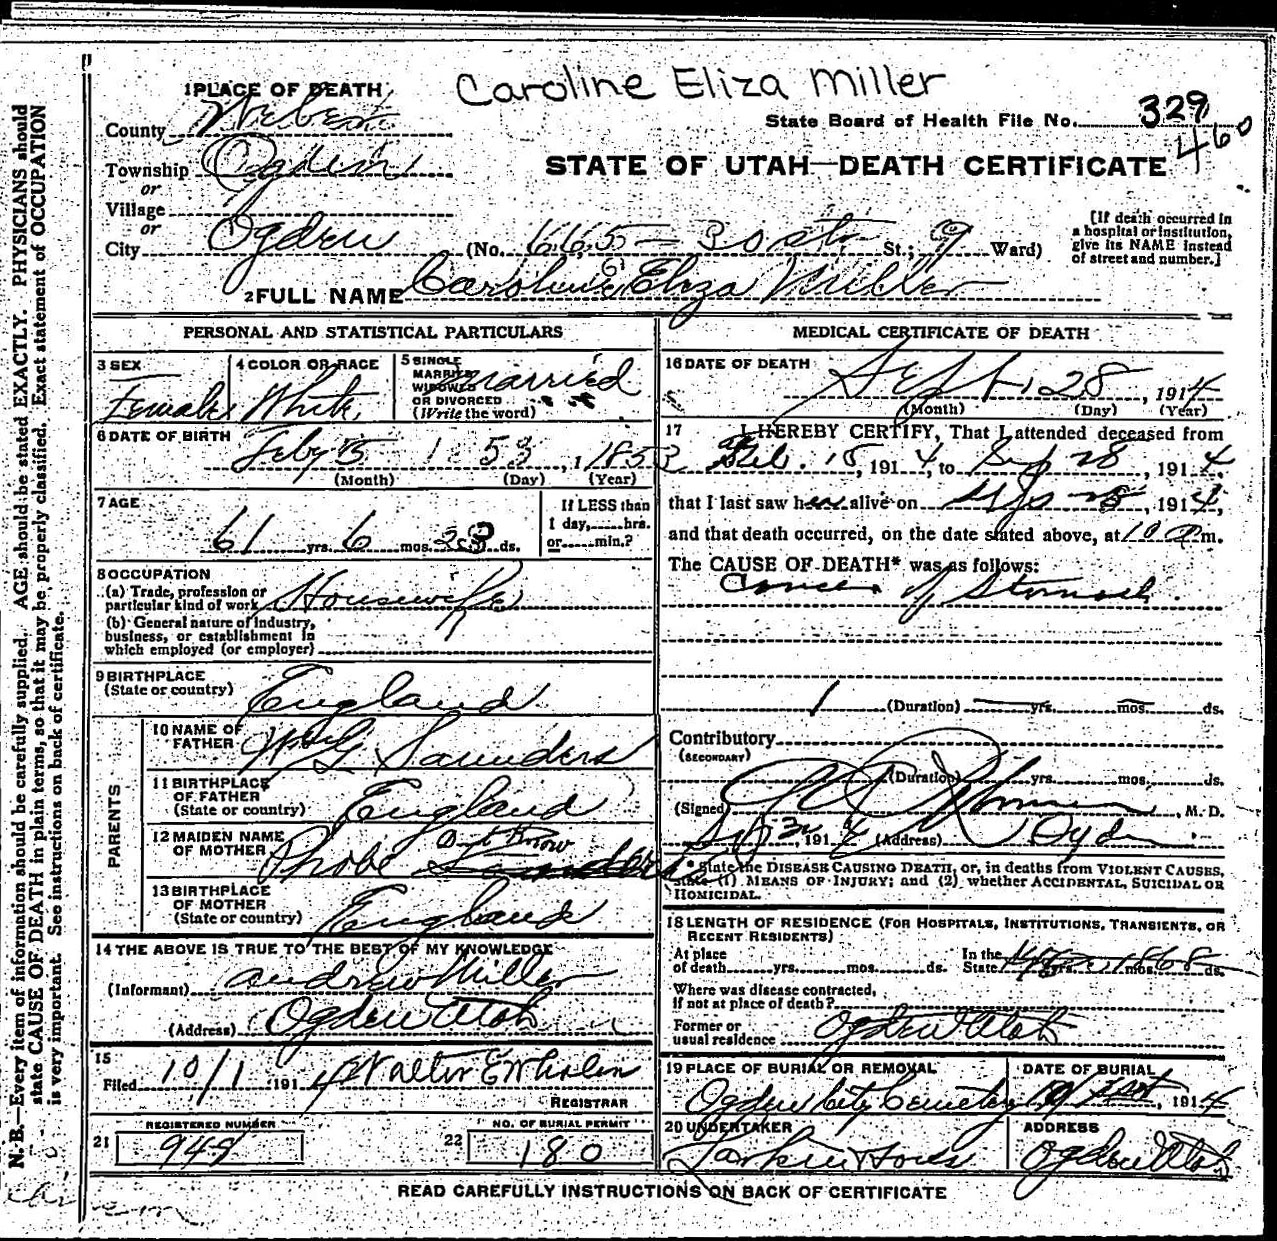 Caroline Eliza Miller
1 PLACE OF DEATH
County Weber
State Board of Health File No. 329
460
Township Ogden
STATE OF UTAH—DEATH CERTIFICATE
or
Village
or
City Ogden (No. 665 - 30 st St.; 9 Ward)
[If death occurred in
a hospital or institution,
give its NAME instead
of street and number.]
2 FULL NAME Caroline Eliza Miller
PERSONAL AND STATISTICAL PARTICULARS
3 SEX
Female
4 COLOR OR RACE
White
5 SINGLE
MARRIED
WIDOWED
OR DIVORCED
(Write the word)
married
6 DATE OF BIRTH
Feby 5 1853, 1 1853
(Month) (Day) (Year)
7 AGE
61 yrs. 6 mos. 23 ds.
If LESS than
1 day,......hrs.
or......min.?
8 OCCUPATION
(a) Trade, profession or
particular kind of work Housewife
(b) General nature of industry,
business, or establishment in
which employed (or employer)
9 BIRTHPLACE
(State or country) England
PARENTS
10 NAME OF
FATHER Wm G Saunders
11 BIRTHPLACE
OF FATHER
(State or country) England
12 MAIDEN NAME
OF MOTHER Phobe Dont Know
13 BIRTHPLACE
OF MOTHER
(State or country) England
14 THE ABOVE IS TRUE TO THE BEST OF MY KNOWLEDGE
(Informant) Andrew Miller
(Address) Ogden Utah
15
Filed 10/1 1914 Walter E Whalen
REGISTRAR
REGISTERED NUMBER
21 945
NO. OF BURIAL PERMIT
22 180
MEDICAL CERTIFICATE OF DEATH
16 DATE OF DEATH
Sept. 28, 1914
(Month) (Day) (Year)
17 I HEREBY CERTIFY, That I attended deceased from
Feb. 15, 1914, to Sep 28, 1914,
that I last saw her alive on Sep 28, 1914,
and that death occurred, on the date stated above, at 10 P m.
The CAUSE OF DEATH* was as follows:
Cancer of Stomach.
1 (Duration) yrs. mos. ds.
Contributory
(SECONDARY)
(Duration) yrs. mos. ds.
(Signed) M. D.
1914 (Address) Ogden
* State the DISEASE CAUSING DEATH, or, in deaths from VIOLENT CAUSES,
state (1) MEANS OF INJURY; and (2) whether ACCIDENTAL, SUICIDAL OR
HOMICIDAL.
18 LENGTH OF RESIDENCE (FOR HOSPITALS, INSTITUTIONS, TRANSIENTS, OR
RECENT RESIDENTS)
At place
of death yrs. mos. ds.
In the
State 1868 yrs. mos. ds.
Where was disease contracted,
if not at place of death?
Former or
usual residence Ogden Utah
19 PLACE OF BURIAL OR REMOVAL
Ogden City Cemetery
DATE OF BURIAL
1914
20 UNDERTAKER
Larkin & Sons
ADDRESS
Ogden Utah
READ CAREFULLY INSTRUCTIONS ON BACK OF CERTIFICATE
N. B.—Every item of information should be carefully supplied. AGE should be stated EXACTLY. PHYSICIANS should
state CAUSE OF DEATH in plain terms, so that it may be properly classified. Exact statement of OCCUPATION
is very important. See instructions on back of certificate.